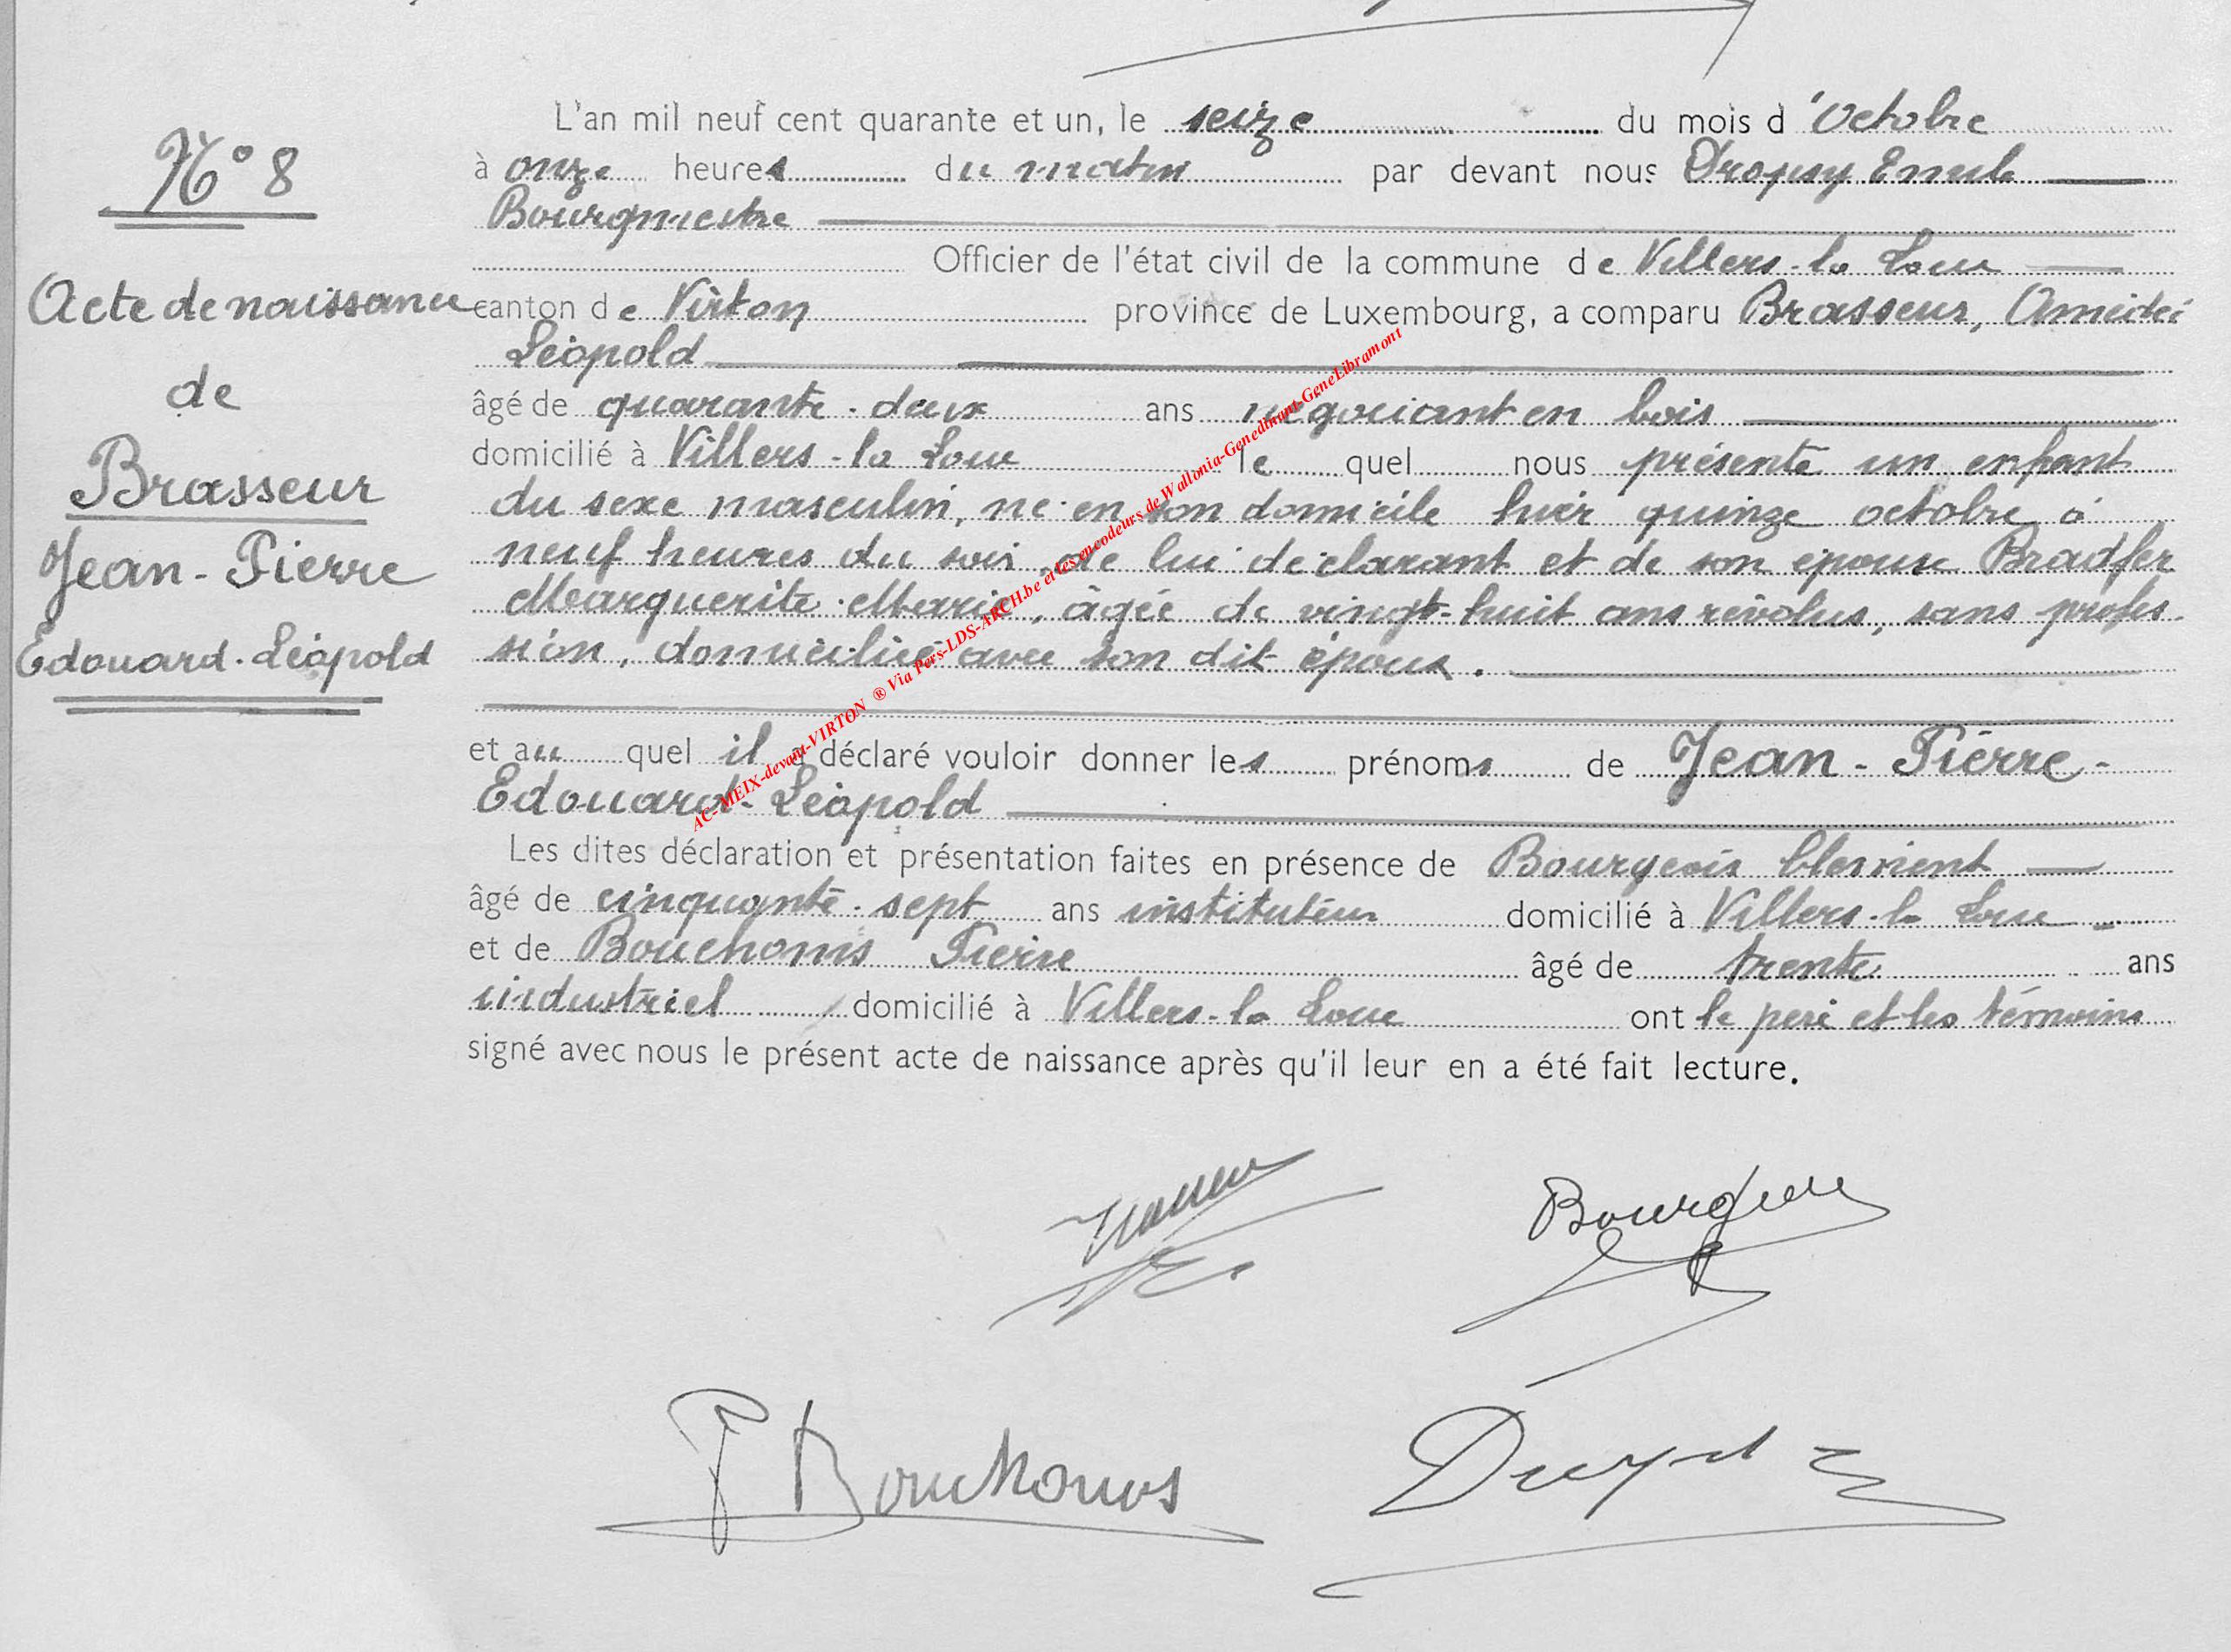 N° 8
Acte de naissance
de
Brasseur
Jean-Pierre
Edouard-Léopold
L'an mil neuf cent quarante et un, le seize du mois d'Octobre
à onze heures du matin par devant nous Dropsy Emile
Bourgmestre
Officier de l'état civil de la commune de Villers-la Loue
canton de Virton province de Luxembourg, a comparu Brasseur, Amédée
Léopold
âgé de quarante-deux ans négociant en bois
domicilié à Villers-la Loue le quel nous présente un enfant
du sexe masculin, né en son domicile hier quinze octobre à
neuf heures du soir, de lui déclarant et de son épouse Bradfer
Marguerite-Marie, âgée de vingt-huit ans révolus, sans profes-
sion, domiciliée avec son dit époux.
et au quel il a déclaré vouloir donner les prénoms de Jean-Pierre-
Edouard-Léopold
Les dites déclaration et présentation faites en présence de Bourgeois Clément
âgé de cinquante-sept ans instituteur domicilié à Villers-la Loue
et de Bouchoms Pierre âgé de trente ans
industriel domicilié à Villers-la Loue ont le père et les témoins
signé avec nous le présent acte de naissance après qu'il leur en a été fait lecture.
Bourgeois
P Bouchoms
AC-MEIX-devant-VIRTON ® Via Pers-LDS-ARCH.be et les encodeurs de Wallonia-Genedinant-GeneLibramont